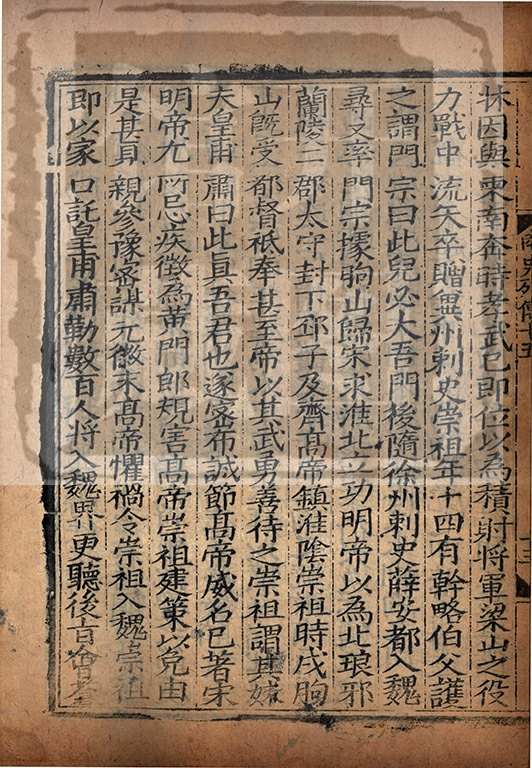 休因與柬南奔時孝武已即位以為積射將軍梁山之役
力戰中流矢卒贈冀州刺史崇祖年十四有幹略伯父護
之謂門宗曰此兒必大吾門後隨徐州刺史薛安都入魏
尋又率門宗據朐山歸宋求淮北立功明帝以為北琅邪
蘭陵二郡太守封下邳子及齊高帝鎮淮陰崇祖時戍朐
山既受都督祗奉甚至帝以其武勇善待之崇祖謂其妹
夫皇甫肅曰此真吾君也遂密布誠節高帝威名已著宋
明帝尤所忌疾徵為黃門郎規害高帝崇祖建策以免由
是甚見親參豫密謀元徽末高帝懼禍令崇祖入魏崇祖
即以家口託皇甫肅勒數百人將入魏界更聽後旨會蒼